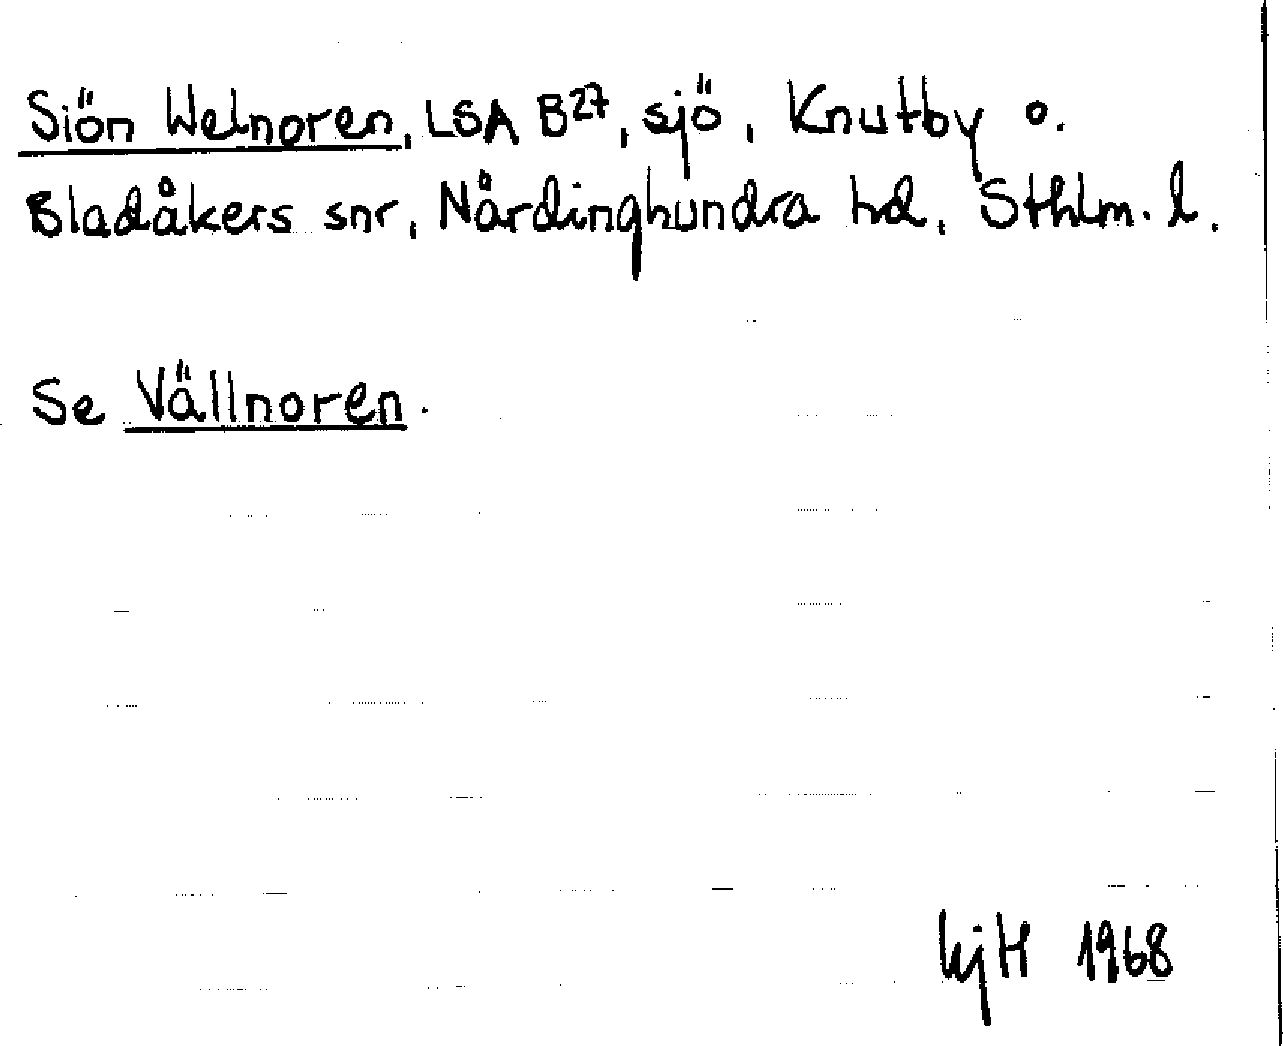 Siön Welnoren, LSA B27, sjö, Knutby o.
Bladåkers snr, Närdinghundra hd, Sthlm. l.
Se Vällnoren.
KjH 1968